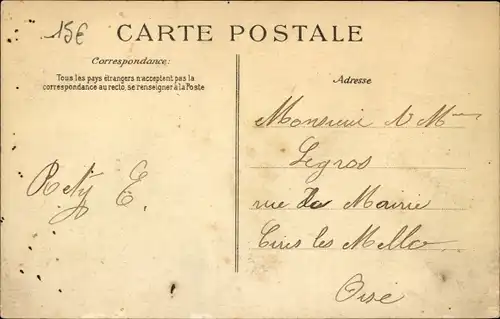 15€
CARTE POSTALE
Correspondance:
Tous les pays étrangers n'acceptent pas la
correspondance au recto, se renseigner à la Poste
Adresse
Monsieur & Mme
Legros
rue de Mairie
Cires les Mello
Oise
Rety E.